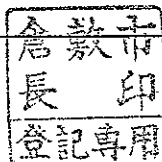 倉敷市
長印
登記専用